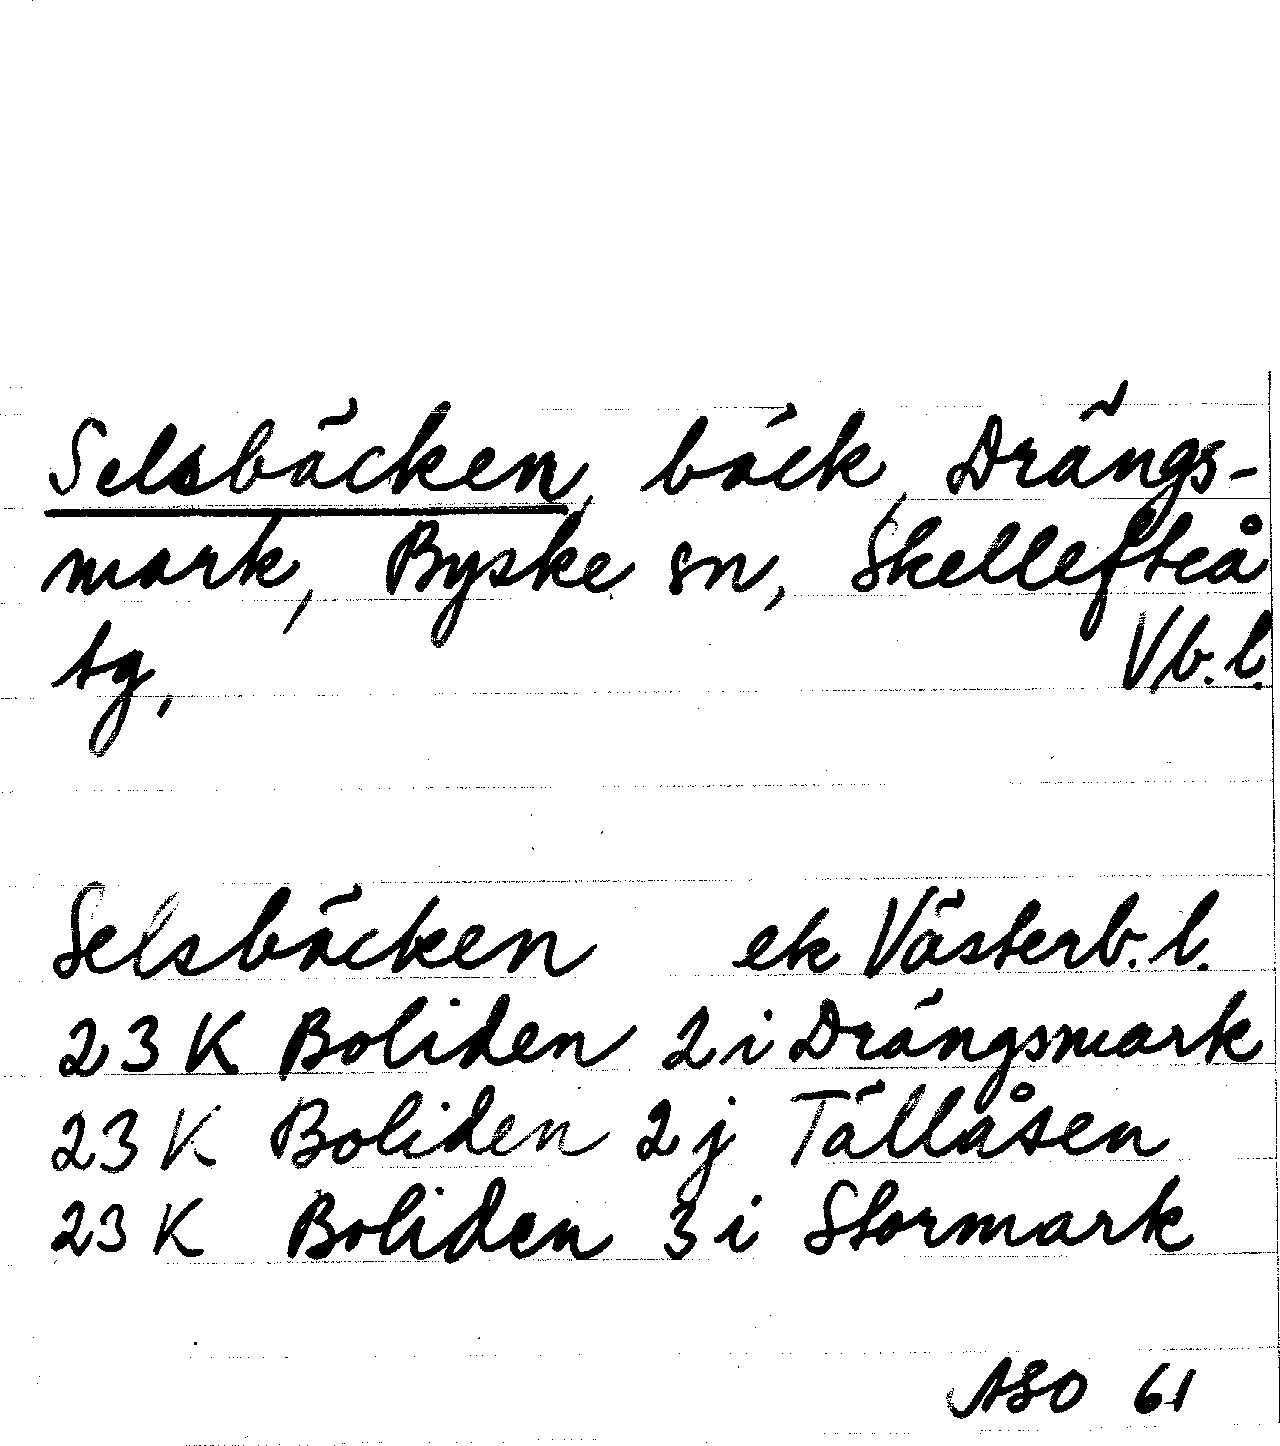 Selsbäcken, bäck, Drängs-
mark, Byske sn, Skellefteå
tg, Vb.l.
Selsbäcken ek Västerb.l.
23 K Boliden 2 i Drängsmark
23 K Boliden 2 j Tällåsen
23 K Boliden 3 i Stormark
ASO 61